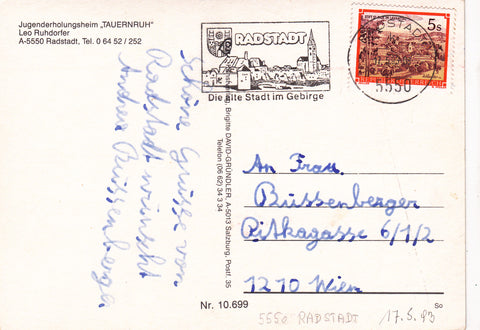 Jugenderholungsheim „TAUERNRUH"
Leo Ruhdorfer
A-5550 Radstadt, Tel. 0 64 52 / 252
Schöne Grüsse von
Radstadt wünscht
Andrea
RADSTADT
Die alte Stadt im Gebirge
RADSTADT
5550
5s
Brigitte DAVID-GRÜNDLER, A-5013 Salzburg, Postf. 35
Telefon (06 62) 34 3 34
An Frau
Bussenberger
Pitkagasse 6/1/2
1210 Wien
Nr. 10.699
So
5550 RADSTADT
17.5.93